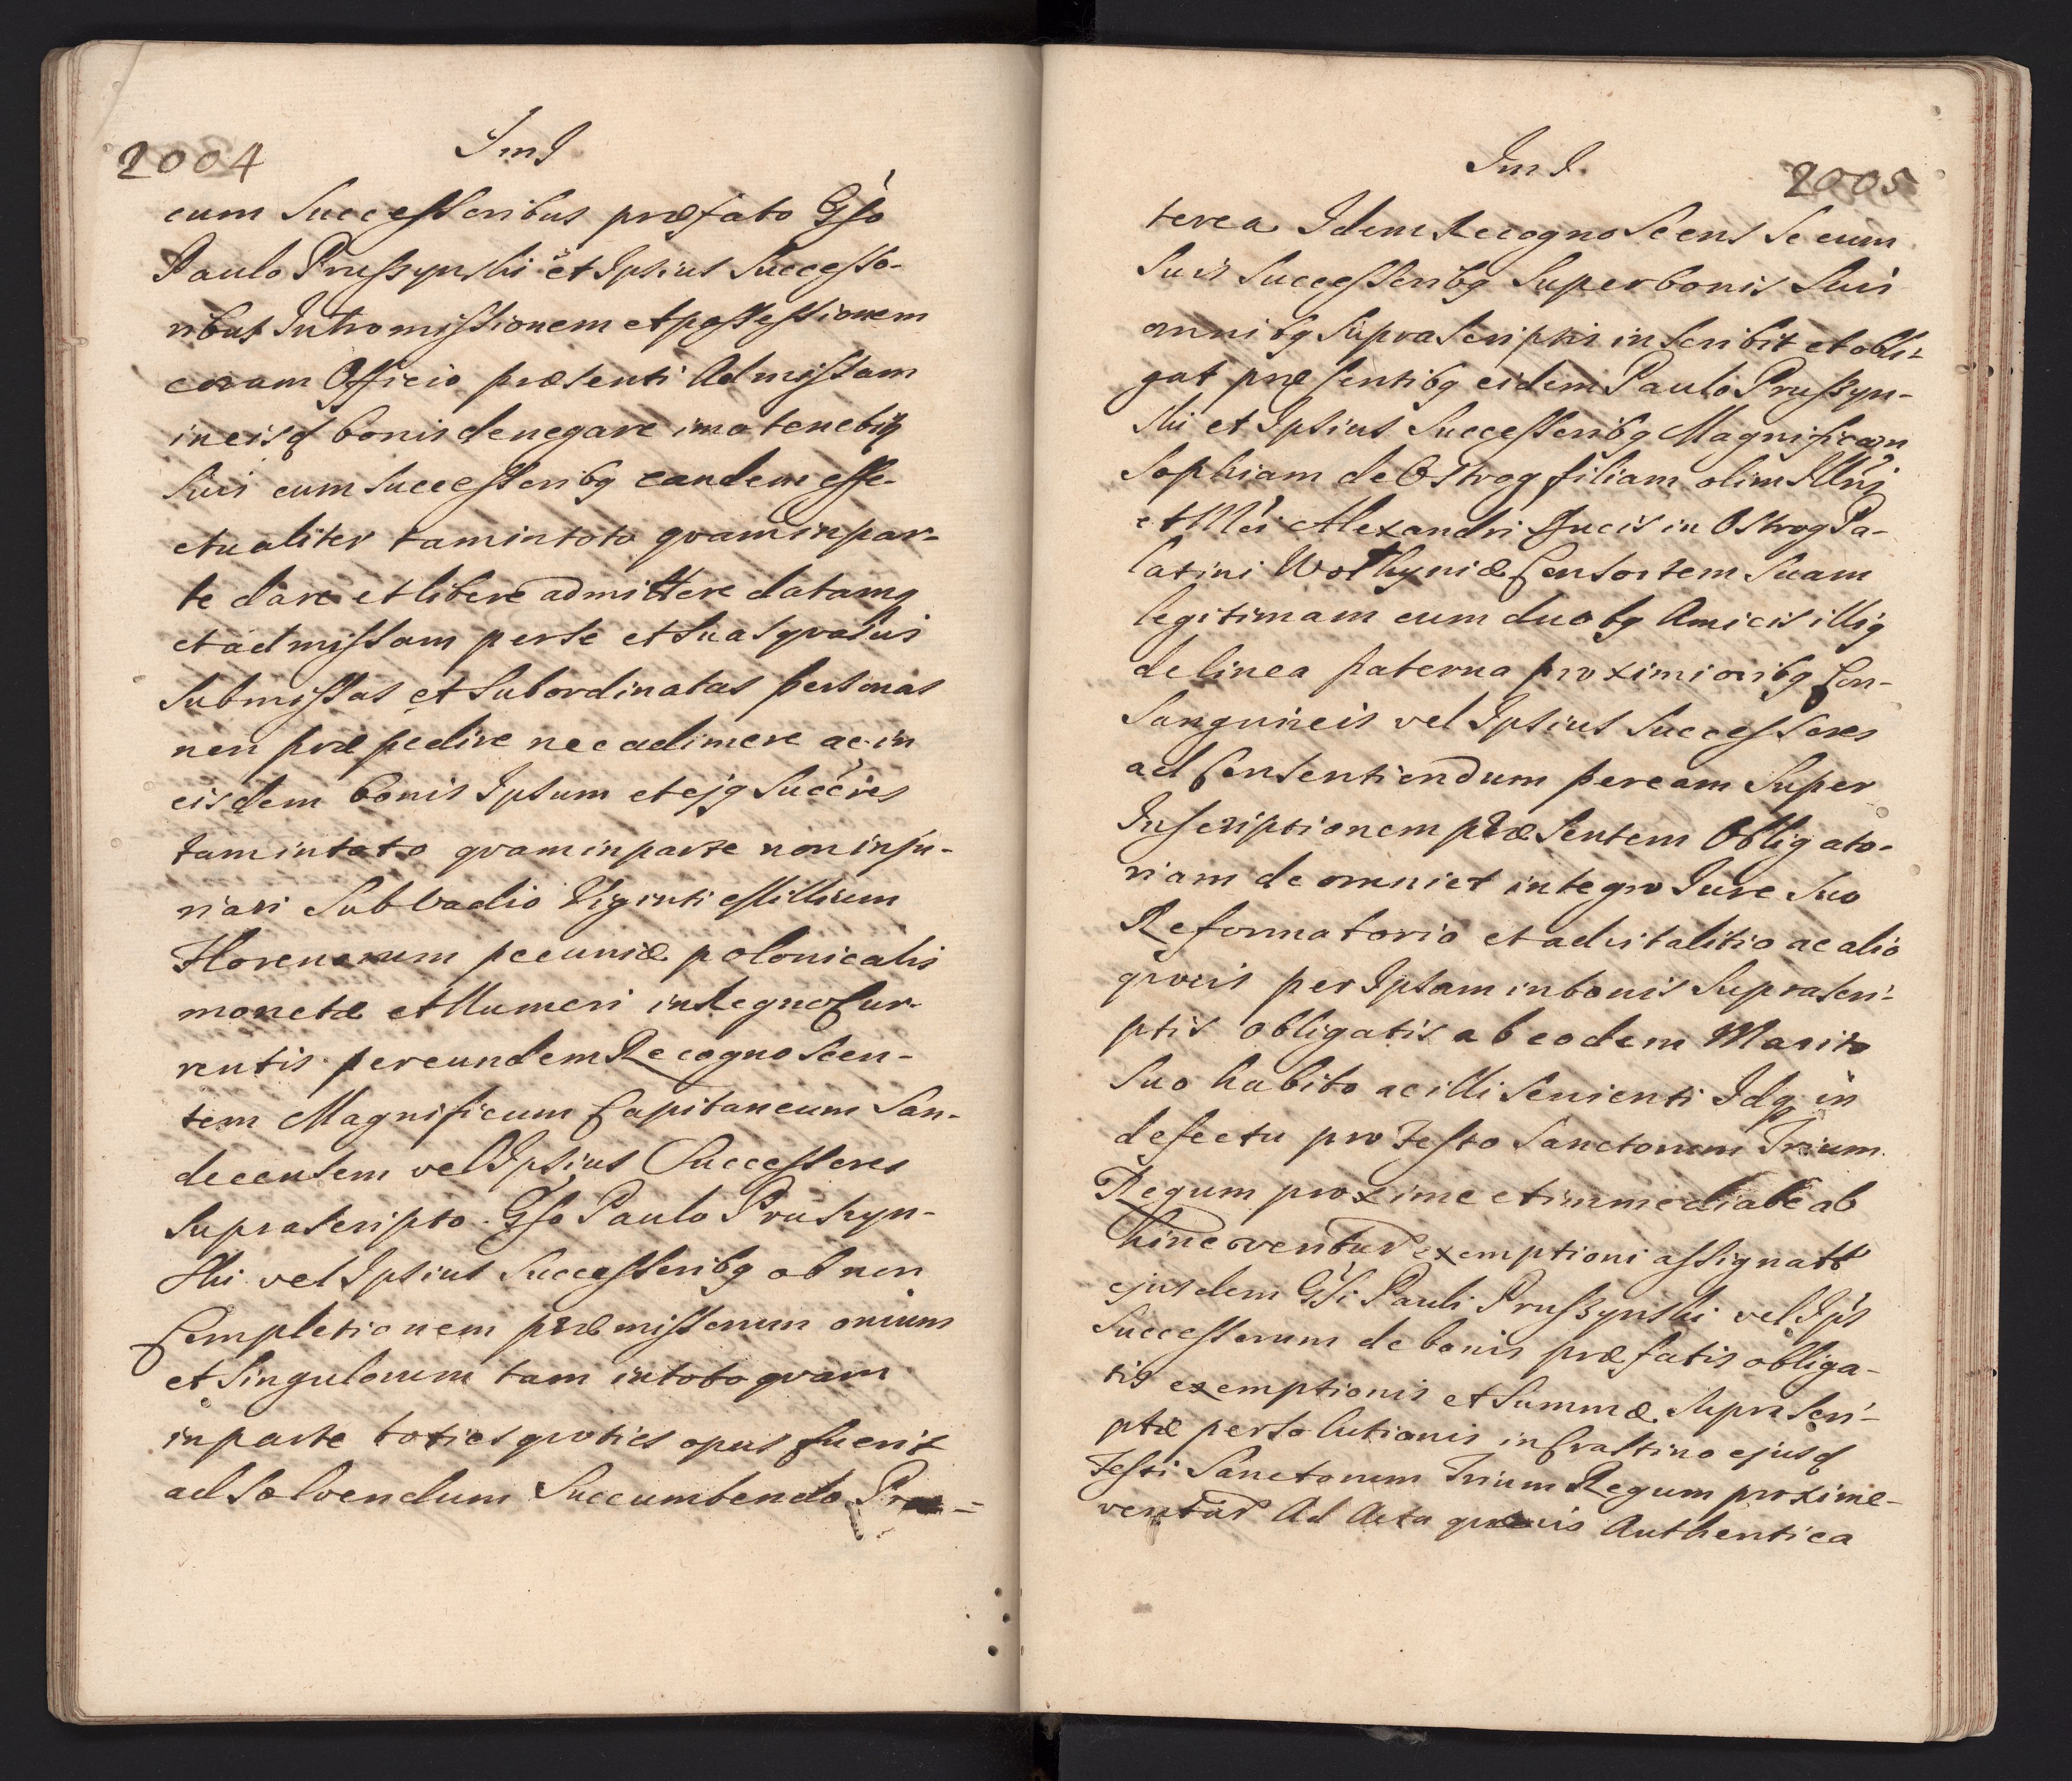 2004
JmJ
cum Successoribus præfato Gso
Paulo Pruszynski et Ipsius Successo-
ribus Intromissionem et possessionem
coram Officio præsenti Admissam
in eisq bonis denegare imo tenebitq
Suis cum successoribq eandem effe-
ctualiter tam in toto qvam in par-
te dare et libere admittere datamq
et admissam per se et Suas qvasvis
Submissas et Subordinatas personas
non præpedire nec adimere ac in
eisdem bonis Ipsum et ejq Succres
tam in toto qvam in parte non inju-
riari Sub vadio Viginti Millium
Florenorum pecuniæ polonicalis
monetæ et Numeri in Regno Cur-
rentis per eundem Recognoscen-
tem Magnificum Capitaneum San-
decensem vel Ipsius Successores
Suprascripto Gso Paulo Pruszyn-
ski vel Ipsius Successoribq ob non
Completionem præmissorum omium
et Singulorum tam in toto qvam
in parte toties qvoties opus fuerit
ad Solvendum Succumbendo Præ=
JmJ.
2005
terea Idem Recognoscens Se cum
Suis Successoribq Super bonis Suis
omnibq Suprascriptis inscribit et obli-
gat præsentibq eidem Paulo Pruszyn-
ski et Ipsius Successoribq Magnificam
Sophiam de Ostrog filiam olim Illris
et Mci Alexandri Ducis in Ostrog Pa-
latini Wolhyniæ Consortem Suam
legitimam cum duobq Amicis illiq
de linea paterna proximioribq Con-
Sangvineis vel Ipsius Successores
ad Consentiendum per eam Super
Inscriptionem præsentem Obligato-
riam de omni et integro Jure Suo
Reformatorio et advitalitio ac alio
qvovis per Ipsam in bonis Suprascri-
ptis obligatis ab eodem Marito
Suo habito ac illi Servienti Idq in
defectu pro Festo Sanctorum Trium
Regum proxime et immediate ab
hinc ventur exemptioni assignatt
ejusdem Gsi Pauli Pruszynski vel Ips
Successorum de bonis præfatis obliga-
tis exemptionis et Summæ Suprascri-
ptæ persolutionis in Crastino ejusq
Festi Sanctorum Trium Regum proxime
ventur Ad Acta qvævis Authentica